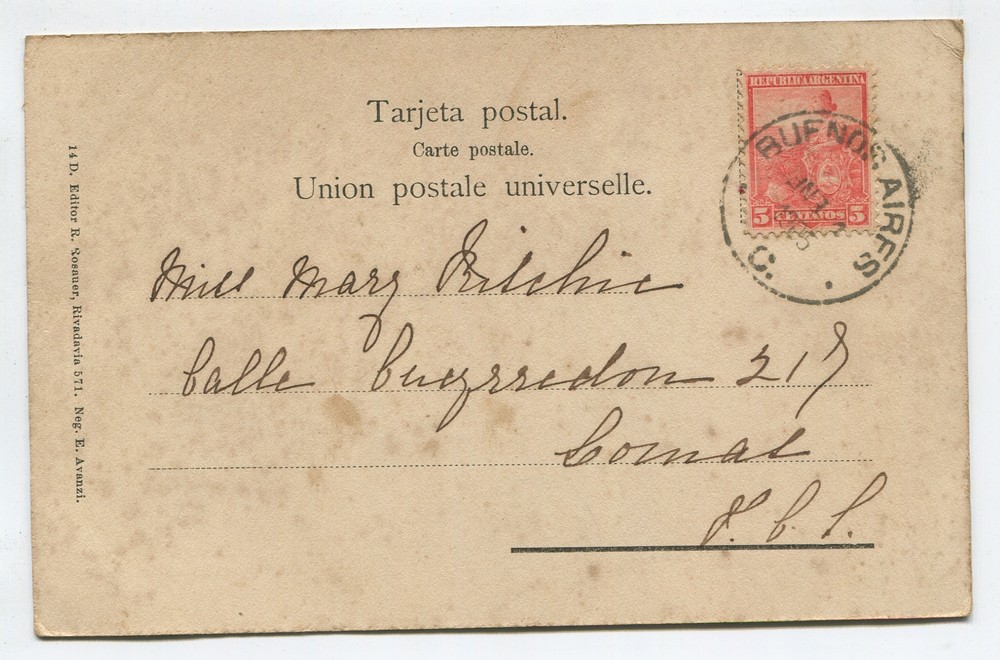 Tarjeta postal.
Carte postale.
Union postale universelle.
REPUBLICA ARGENTINA
5 CENTAVOS 5
BUENOS AIRES
C.
Miss Mary Ritchie
Calle Pueyrredon 217
Lomas
F. C. S.
14 D. Editor R. Rosauer, Rivadavia 571. Neg. E. Avanzi.